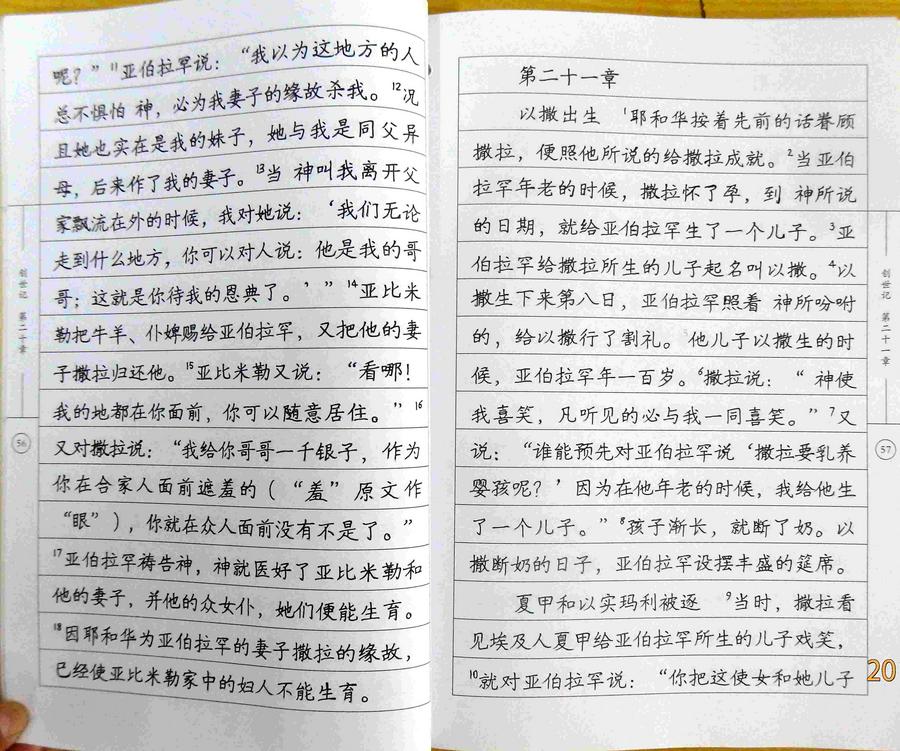 呢？”11亚伯拉罕说：“我以为这地方的人
总不惧怕 神，必为我妻子的缘故杀我。12况
且她也实在是我的妹子，她与我是同父异
母，后来作了我的妻子。13当 神叫我离开父
家飘流在外的时候，我对她说：‘我们无论
走到什么地方，你可以对人说：他是我的哥
哥；这就是你待我的恩典了。’”14亚比米
勒把牛羊、仆婢赐给亚伯拉罕，又把他的妻
子撒拉归还他。15亚比米勒又说：“看哪！
我的地都在你面前，你可以随意居住。”16
又对撒拉说：“我给你哥哥一千银子，作为
你在合家人面前遮羞的（“羞”原文作
“眼”），你就在众人面前没有不是了。”
17亚伯拉罕祷告神，神就医好了亚比米勒和
他的妻子，并他的众女仆，她们便能生育。
18因耶和华为亚伯拉罕的妻子撒拉的缘故，
已经使亚比米勒家中的妇人不能生育。
创世记 第二十章
56
第二十一章
以撒出生 1耶和华按着先前的话眷顾
撒拉，便照他所说的给撒拉成就。2当亚伯
拉罕年老的时候，撒拉怀了孕，到 神所说
的日期，就给亚伯拉罕生了一个儿子。3亚
伯拉罕给撒拉所生的儿子起名叫以撒。4以
撒生下来第八日，亚伯拉罕照着 神所吩咐
的，给以撒行了割礼。他儿子以撒生的时
候，亚伯拉罕年一百岁。6撒拉说：“ 神使
我喜笑，凡听见的必与我一同喜笑。”7又
说：“谁能预先对亚伯拉罕说‘撒拉要乳养
婴孩呢？’因为在他年老的时候，我给他生
了一个儿子。”8孩子渐长，就断了奶。以
撒断奶的日子，亚伯拉罕设摆丰盛的筵席。
夏甲和以实玛利被逐 9当时，撒拉看
见埃及人夏甲给亚伯拉罕所生的儿子戏笑，
10就对亚伯拉罕说：“你把这使女和她儿子
创世记 第二十一章
57
20